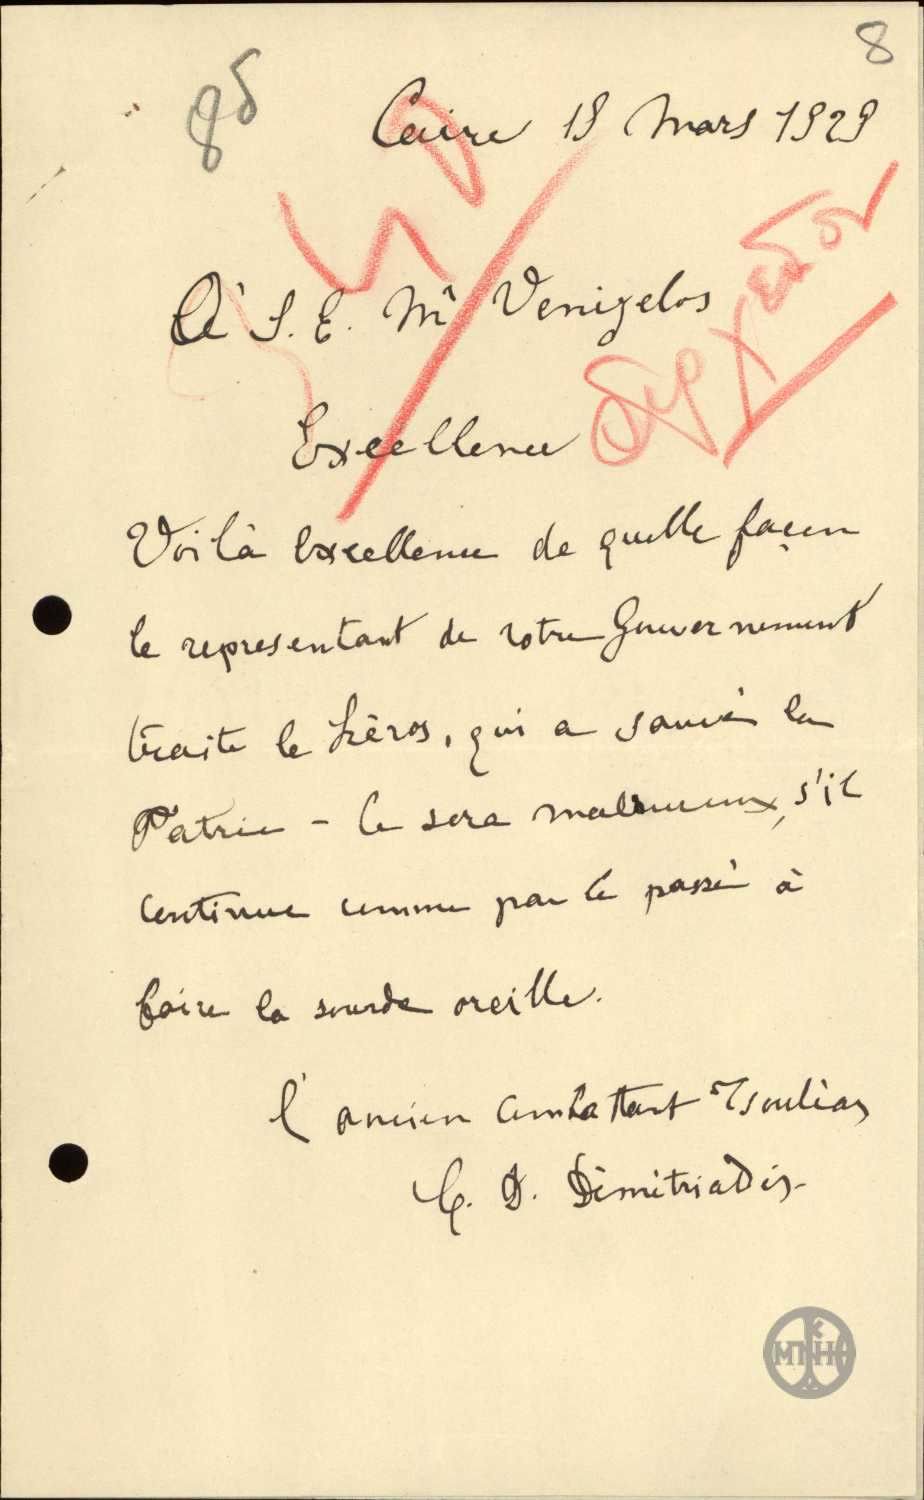 8
8δ
Caire 19 Mars 1929
À S. E. Mr Venizelos
Excellence
Voilà Excellence de quelle façon
le representant de votre Gouvernement
traite le héros, qui a sauvé la
Patrie - Ce sera malheureux, s'il
continue comme par le passé à
faire la sourde oreille.
l'ancien combattant
D. Dimitriadis
ΜΠΗΚ